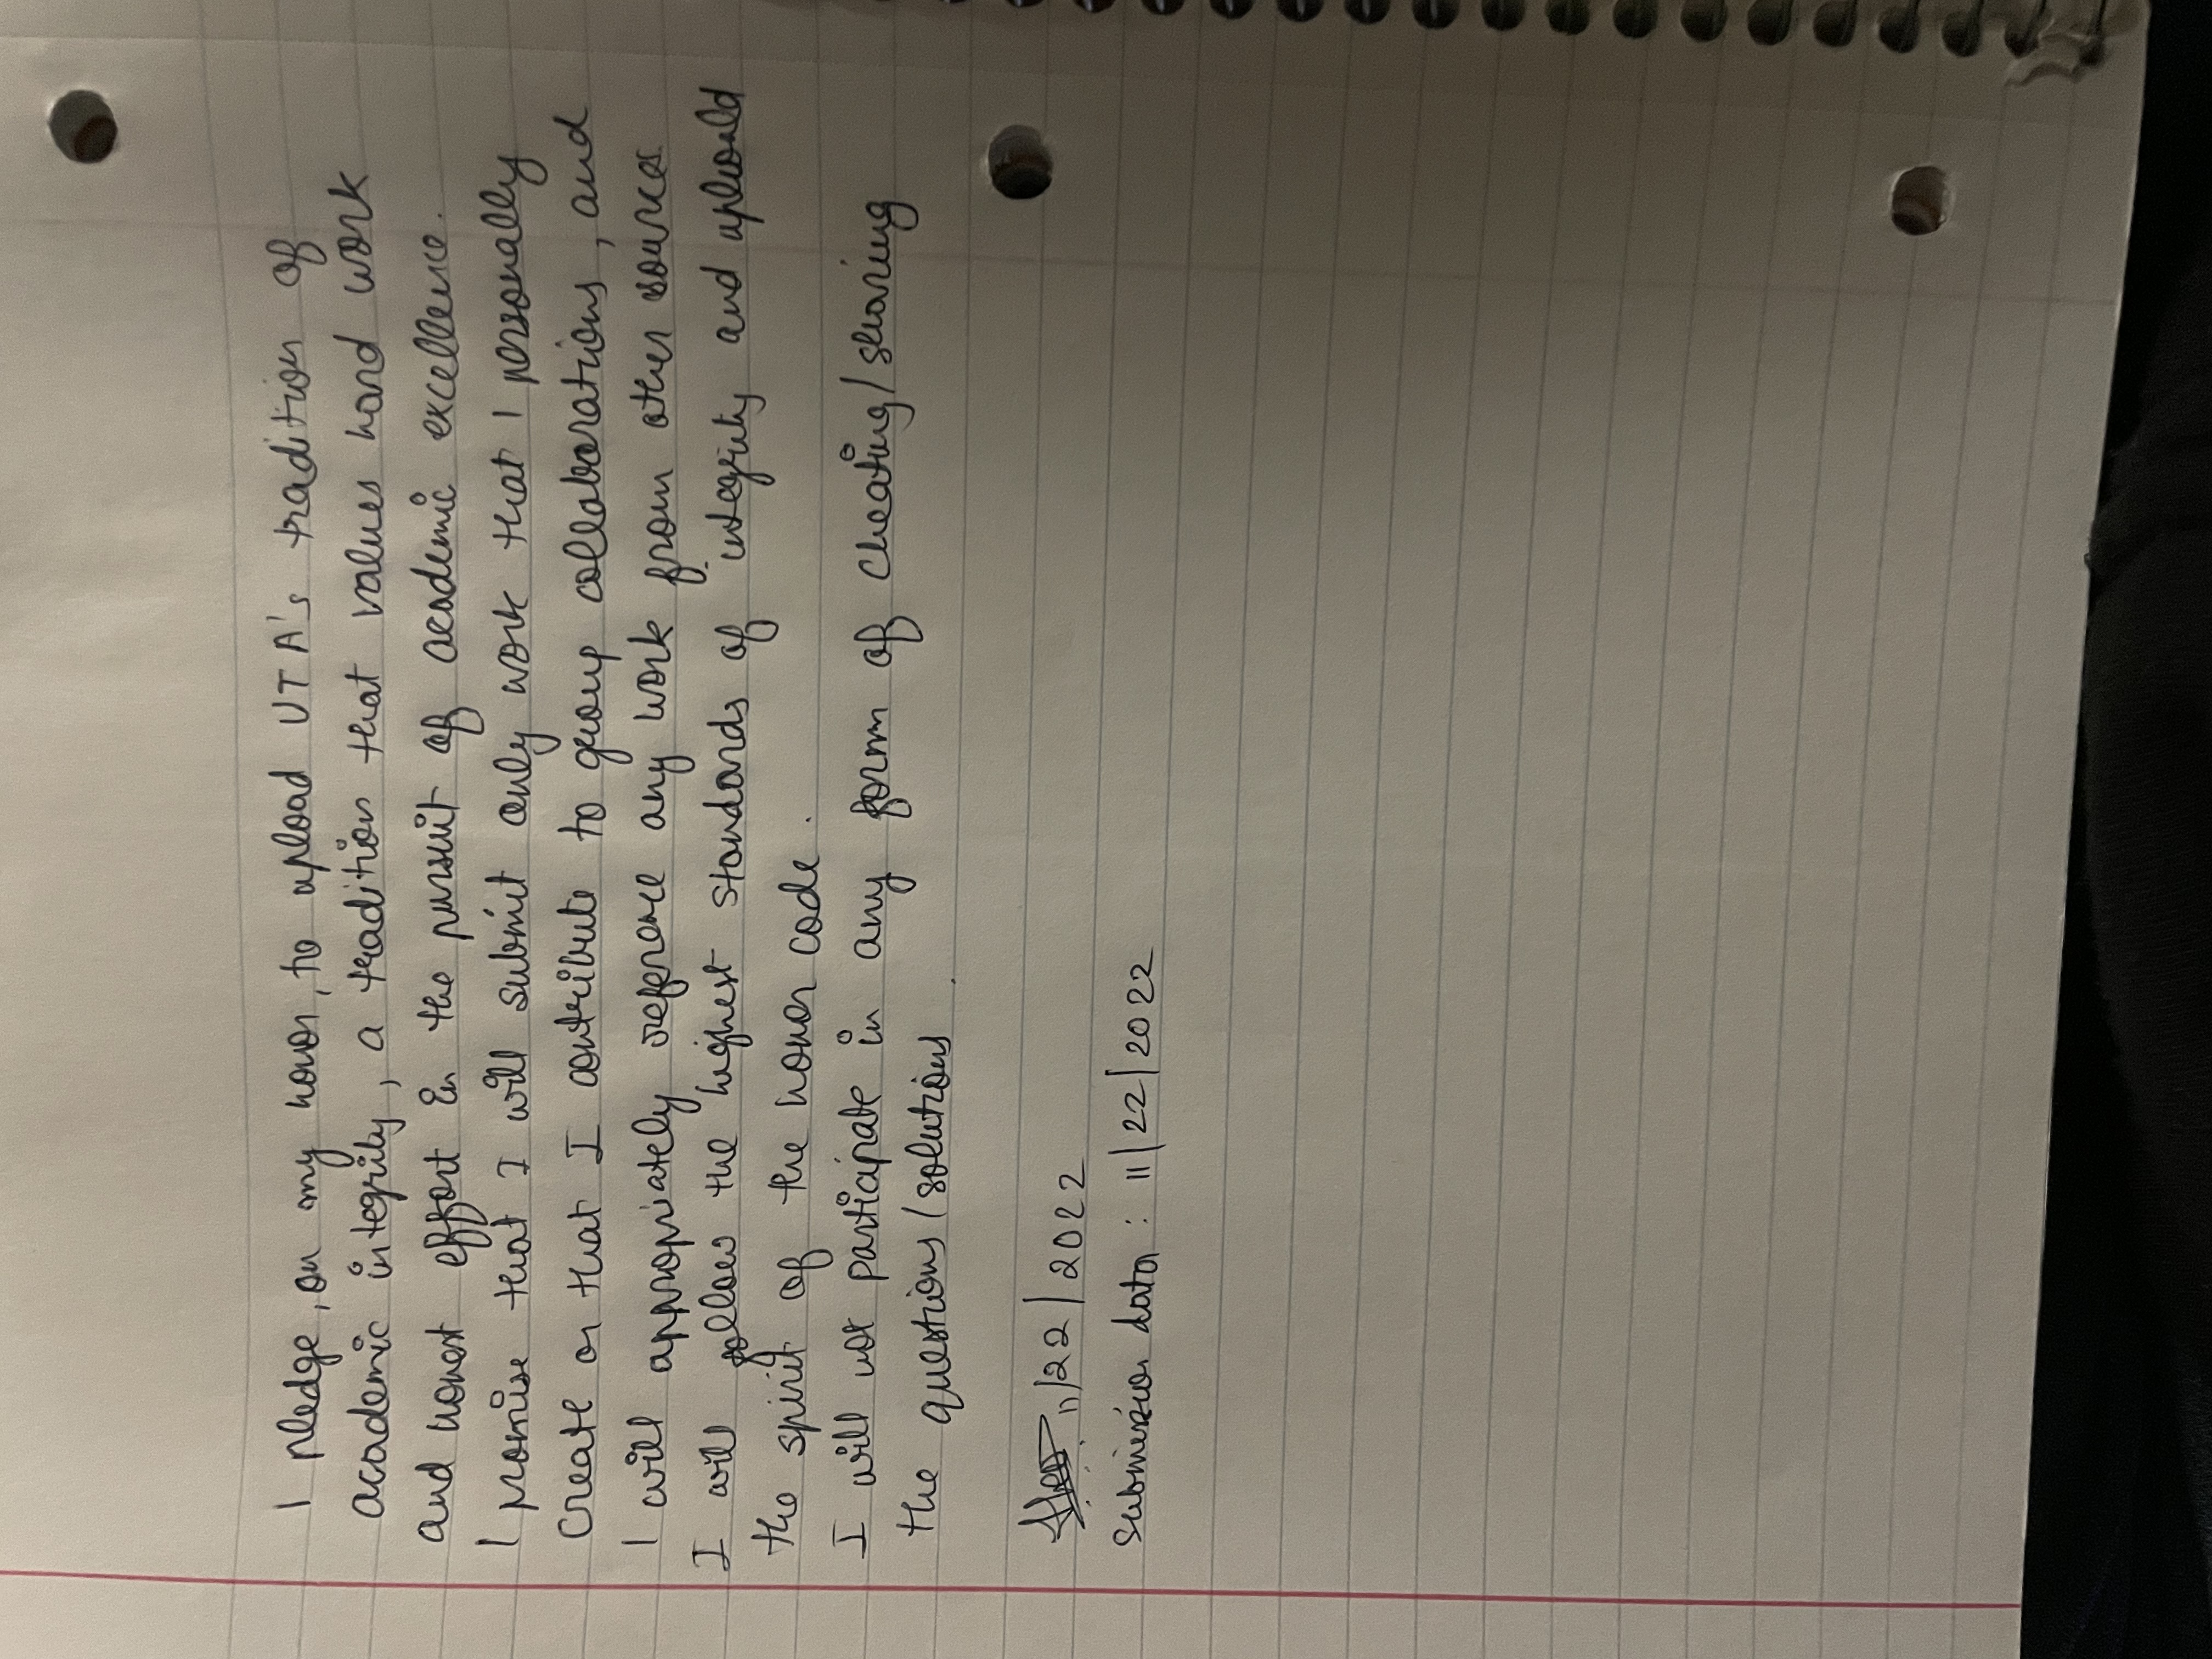 I pledge, on my honor, to upload UTA's tradition of
academic integrity, a tradition that values hard work
and honest effort in the pursuit of academic excellence.
I promise that I will submit only work that I personally
create or that I contribute to group collaborations, and
I will appropriately reference any work from other sources
I will follow the highest standards of integrity and uphold
the spirit of the honor code.
I will not participate in any form of cheating/sharing
the questions/solutions.
11/22/2022
submission data: 11/22/2022